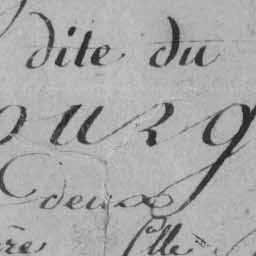 dite du
ourg
deux
ère fille